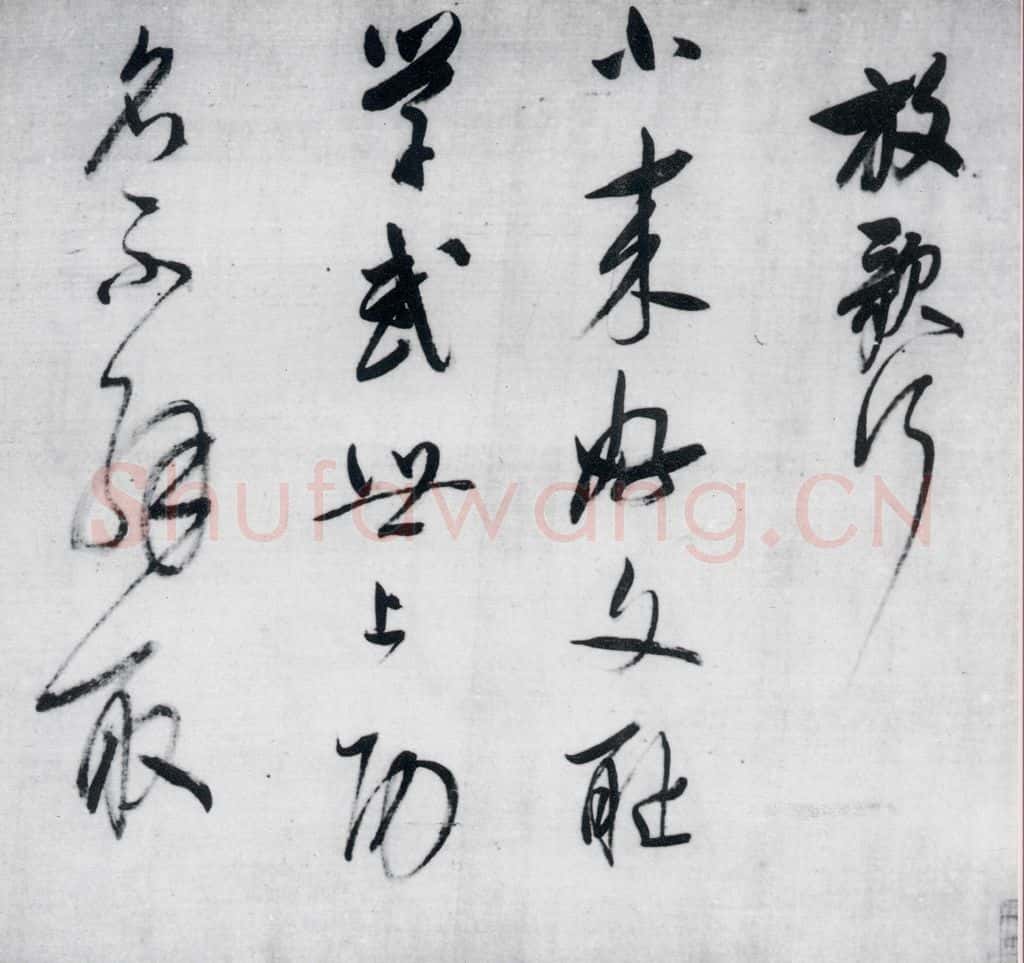 放歌行
小來好文耻
學武世上功
名不解取
Shufawang.CN